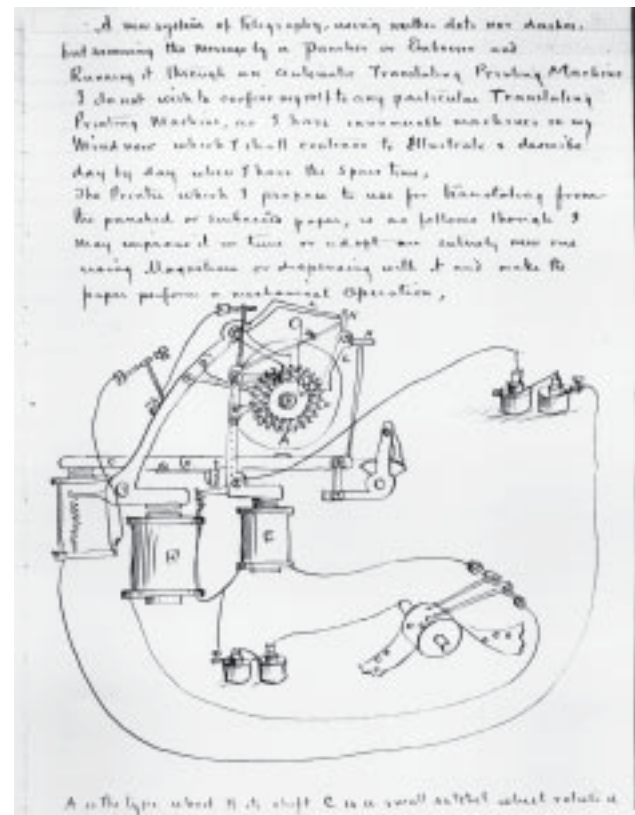 A new system of Telegraphy, using neither dots nor dashes,
but receiving the message by a Puncher or Embosser and
Running it through an Automatic Translating Printing Machine
I do not wish to confine myself to any particular Translating
Printing Machine, as I have innumerable machines in my
Mind now which I shall continue to Illustrate & describe
day by day when I have the Spare time,
The Printer which I propose to use for translating from
the punched or embossed paper, is as follows though I
May improve it in time or adopt an entirely new one
using Magnetism or dispensing with it and make the
paper perform a mechanical Operation,
A
R
E
A is the type wheel its shaft C is a small ratchet wheel